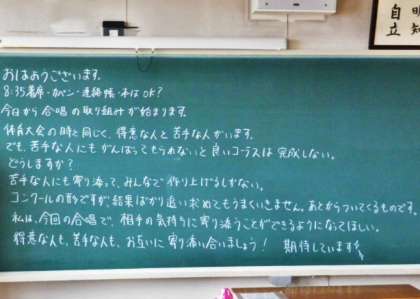 自立
明知
おはようございます。
8:35着席・カバン・連絡帳・本はOK?
今日から合唱の取り組みが始まります。
体育大会の時と同じく、得意な人と苦手な人がいます。
でも、苦手な人にもがんばってもらわないと良いコーラスは完成しない。
どうしますか?
苦手な人にも寄り添って、みんなで作り上げるしかない。
コンクールの形ですが、結果ばかり追い求めてもうまくいきません。あとからついてくるものです。
私は、今回の合唱で、相手の気持ちに寄り添うことができるようになってほしい。
得意な人も、苦手な人も、お互いに寄り添い合いましょう! 期待しています